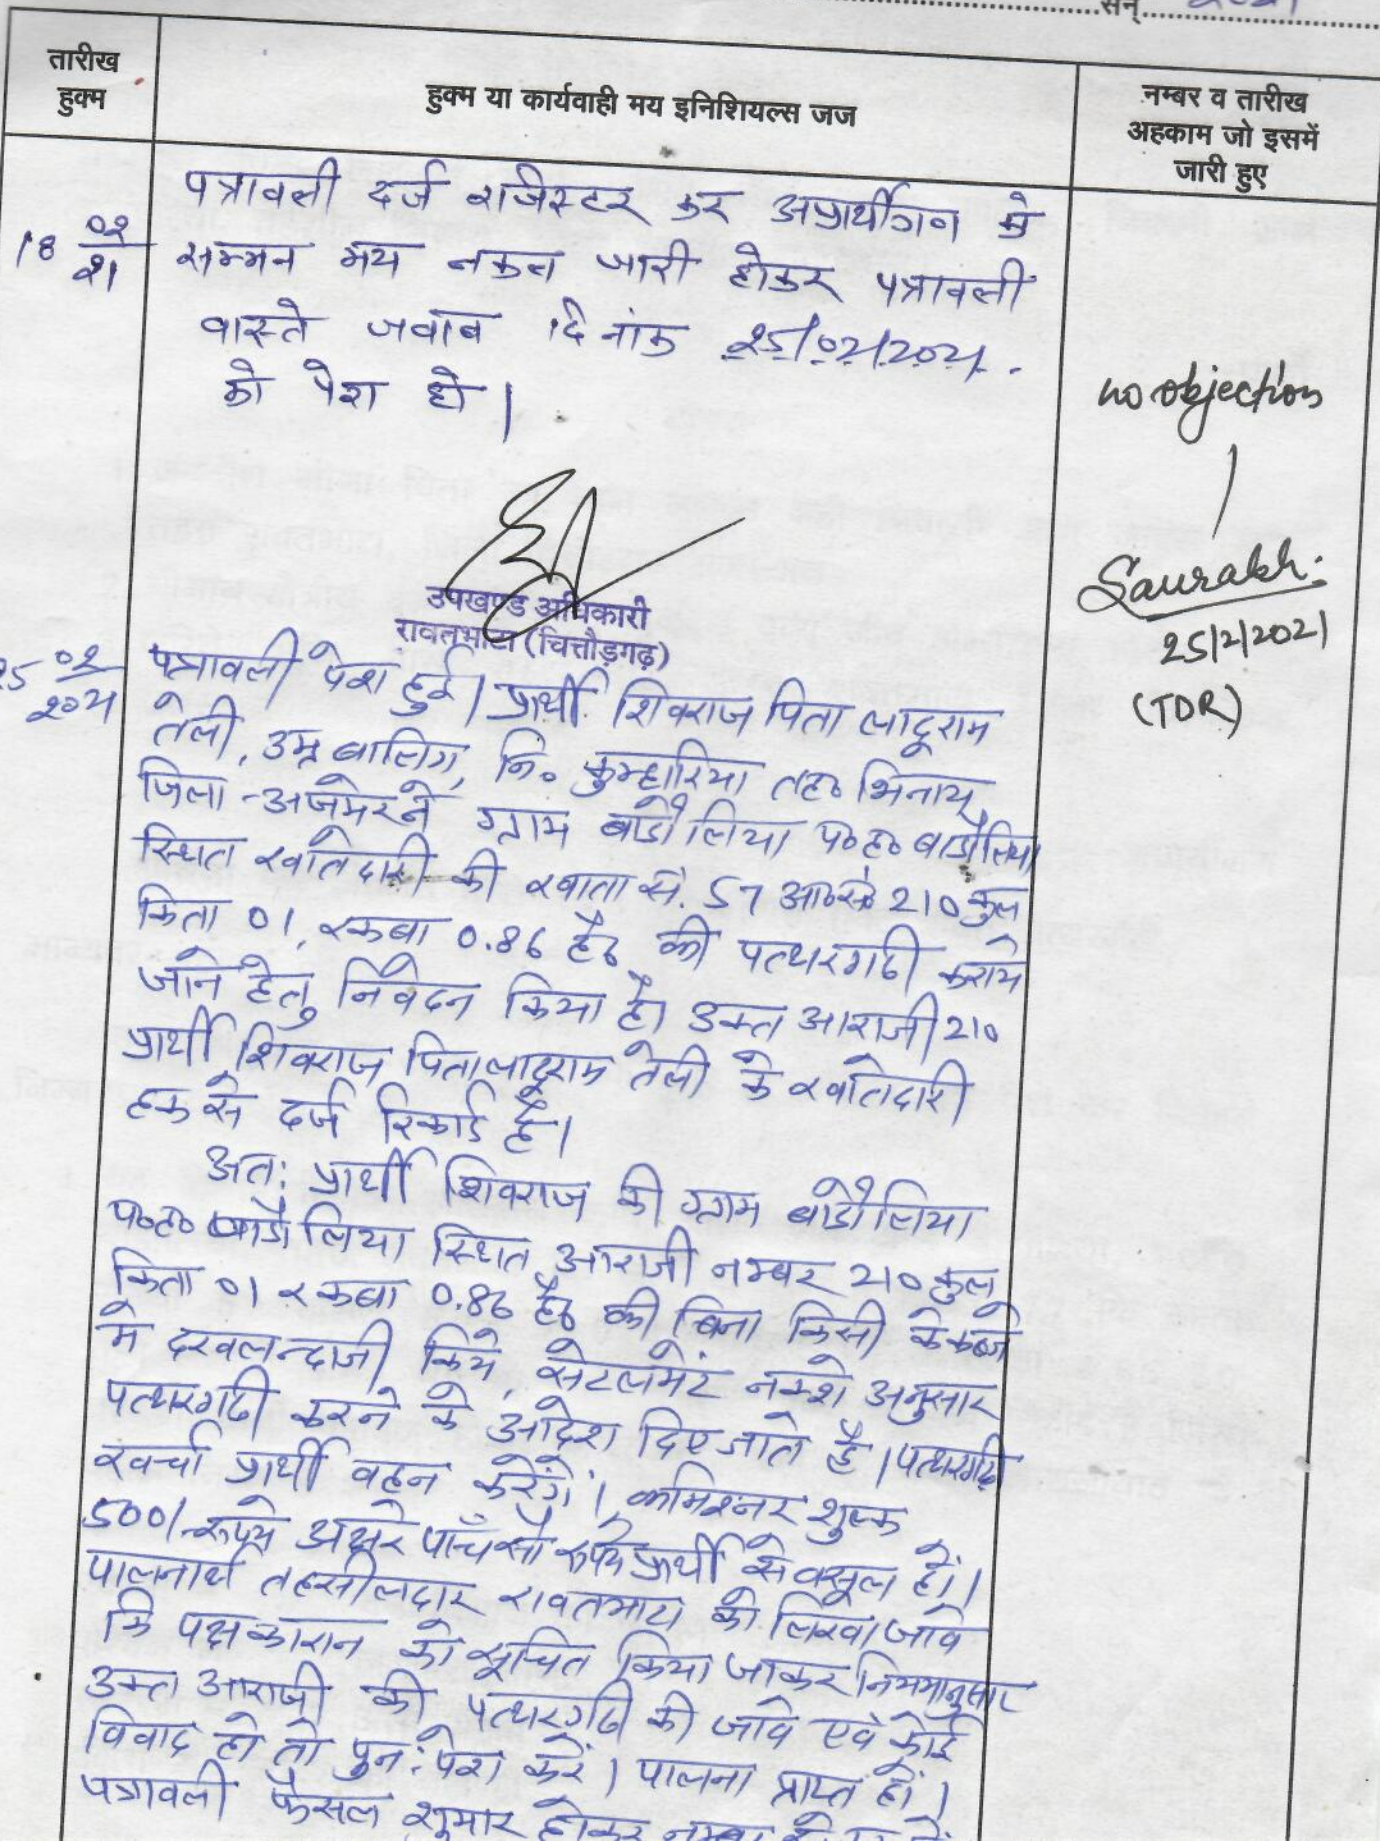 सन् 2021
तारीख
हुक्म
हुक्म या कार्यवाही मय इनिशियल्स जज
नम्बर व तारीख
अहकाम जो इसमें
जारी हुए
18 02/21
पत्रावली दर्ज राजिस्टर कर अप्रार्थीगण को
सम्मन मय नकल जारी होकर पत्रावली
वास्ते जवाब दिनांक 25/02/2021.
को पेश हो।
उपखण्ड अधिकारी
रावतभाटा (चित्तौड़गढ़)
no objection
Saurabh.
25/2/2021
(TDR)
25 02/2021
पत्रावली पेश हुई। प्रार्थी शिवराज पिता लादूराम
तेली, उम्र बालिग, नि० कुम्हारिया तह० भिनाय,
जिला-अजमेर ने ग्राम बाडोलिया प०ह० बाडोलिया
स्थित खातेदारी की खाता सं. 57 आ०सं० 210 कुल
किता 01, रकबा 0.86 है० की पत्थरगढी कराये
जाने हेतु निवेदन किया है। उक्त आराजी 210
प्रार्थी शिवराज पिता लादूराम तेली के खातेदारी
हक से दर्ज रिकार्ड है।
अतः प्रार्थी शिवराज की ग्राम बाडोलिया
प०ह० बाडोलिया स्थित आराजी नम्बर 210 कुल
किता 01 रकबा 0.86 है० की बिना किसी के कब्जे
मे दखलन्दाजी किये, सेटलमेंट नक्शे अनुसार
पत्थरगढी करने के आदेश दिए जाते है। पत्थरगढी
खर्चा प्रार्थी वहन करेंगे। कमिश्नर शुल्क
500/- रूपये अक्षरे पाँच सौ रूपये प्रार्थी से वसूल हों।
पालनार्थ तहसीलदार रावतभाटा को लिखा जावे
कि पक्षकारान को सूचित किया जाकर नियमानुसार
उक्त आराजी की पत्थरगढी की जावे एवं कोई
विवाद हो तो पुनः पेश करें। पालना प्राप्त हों।
पत्रावली फैसल शुमार होकर